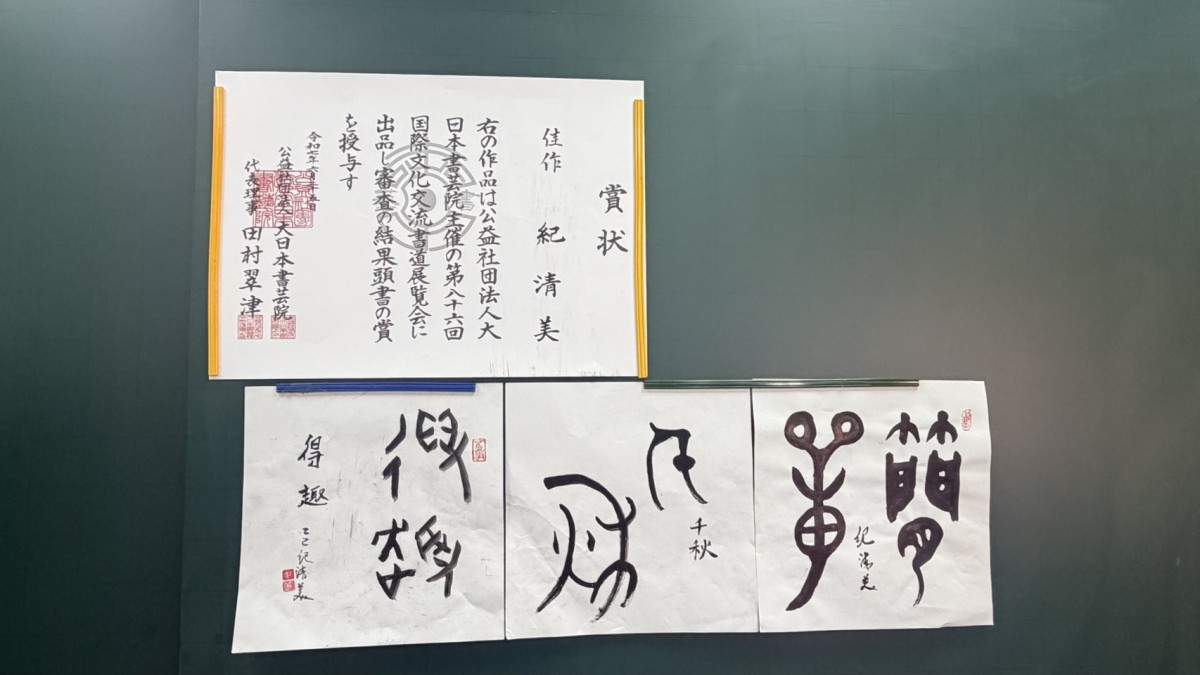 賞状
佳作 紀清美
右の作品は公益社団法人大
日本書芸院主催の第八十六回
国際文化交流書道展覧会に
出品し審査の結果頭書の賞
を授与す
令和七年六月
公益社団法人大日本書芸院
代表理事 田村翠津
紀清美
千秋
得趣
乙巳紀清美